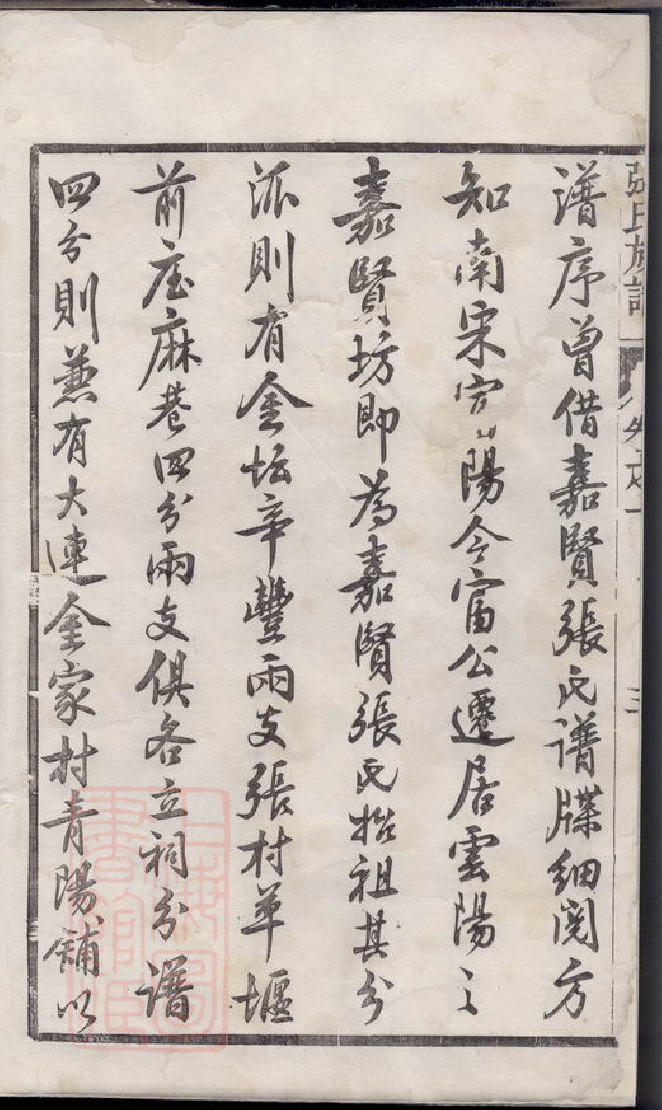 張氏族譜 卷之一 三
譜序曾借嘉賢張氏譜牒細閱方
知南宋官陽令富公遷居雲陽之
嘉賢坊即為嘉賢張氏始祖其分
派則有金壇辛豐兩支張村草堰
前莊麻巷四分兩支俱各立祠分譜
四分則兼有大連金家村青陽舖以
上海圖書館藏